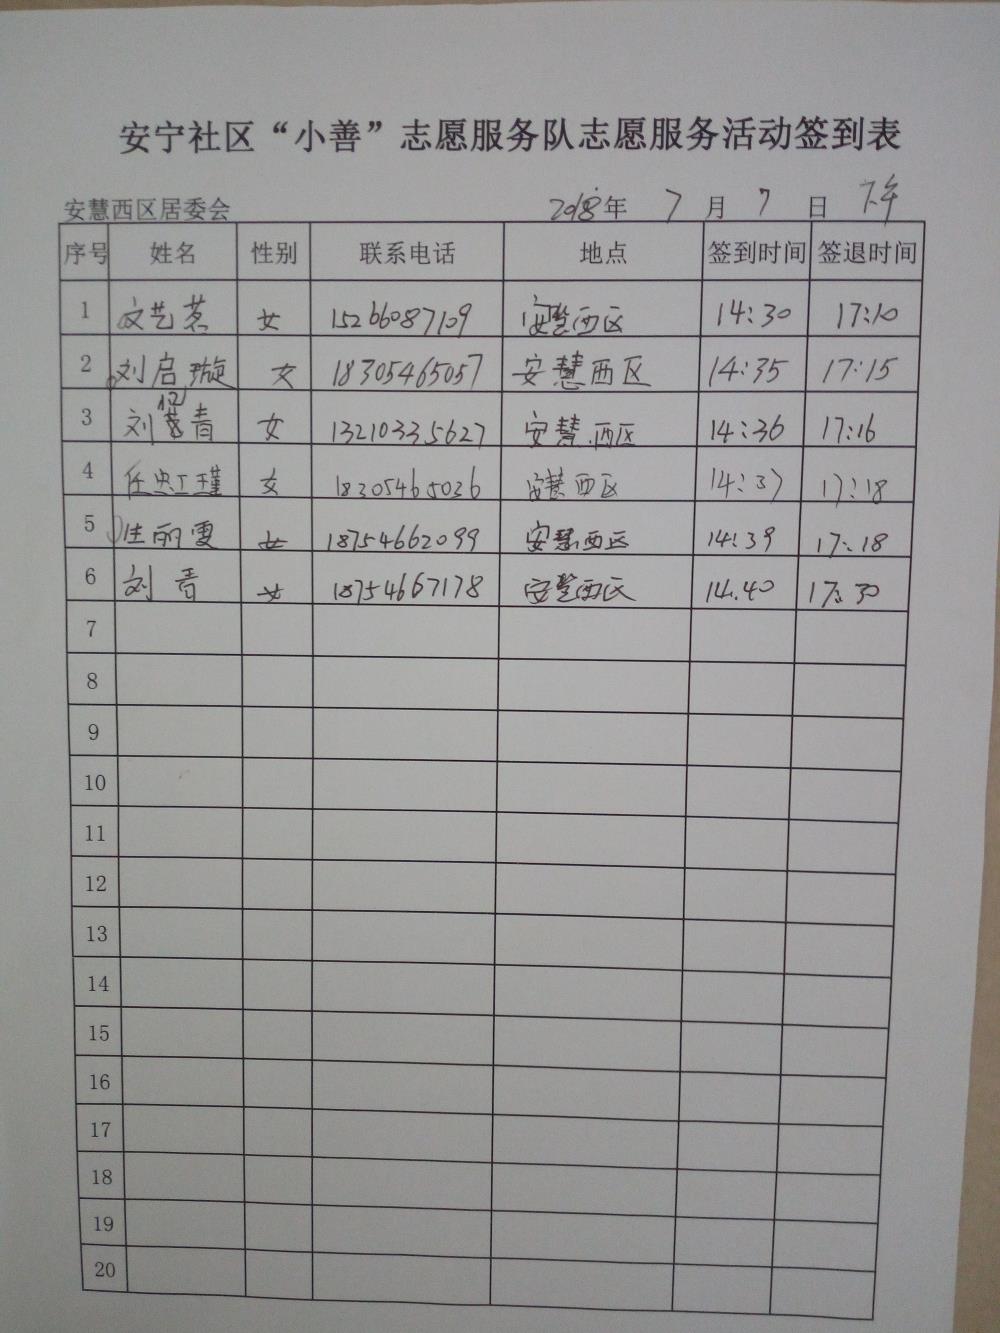 安宁社区“小善”志愿服务队志愿服务活动签到表
安慧西区居委会 2018年 7 月 7 日 下午
序号 姓名 性别 联系电话 地点 签到时间 签退时间
1 文艺茗 女 15266087109 安慧西区 14:30 17:10
2 刘启璇 女 18305465057 安慧西区 14:35 17:15
3 刘 青 女 13210335627 安慧西区 14:36 17:16
4 任忠 瑾 女 18305465036 安慧西区 14:37 17:18
5 丽雯 女 18754662099 安慧西区 14:39 17:18
6 刘青 女 18754667178 安慧西区 14.40 17:30
7
8
9
10
11
12
13
14
15
16
17
18
19
20